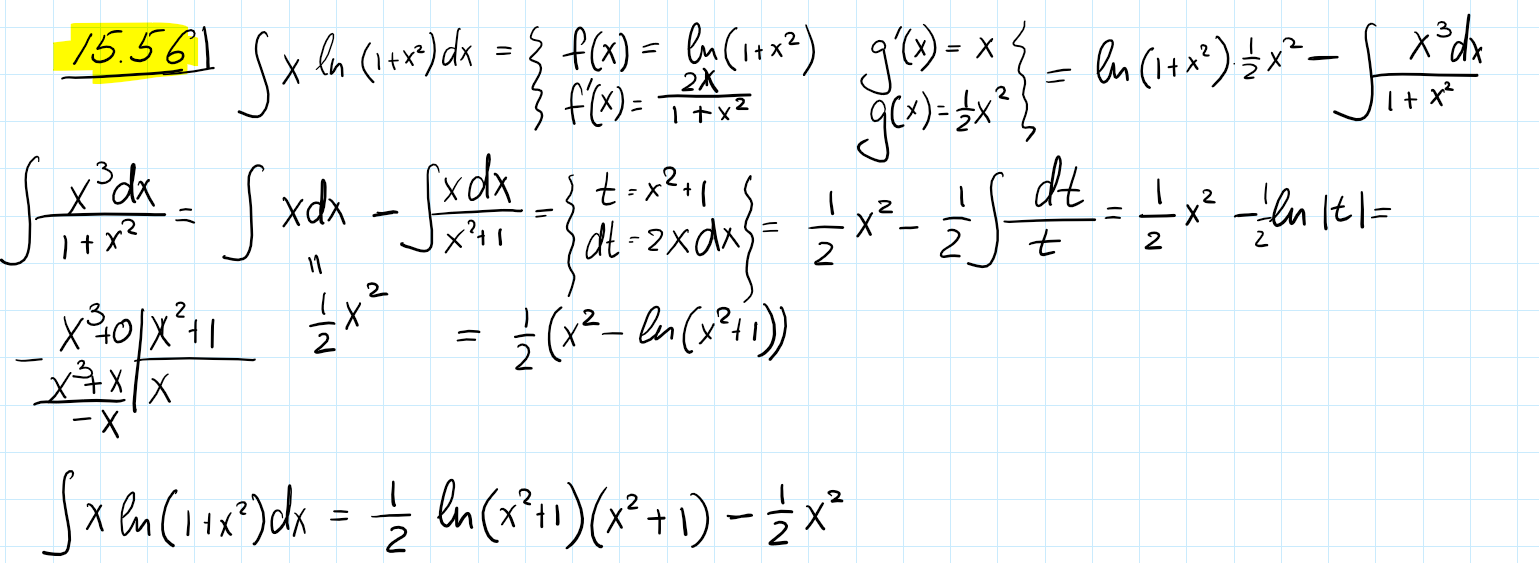 15.56 ∫ x ln (1+x²) dx = { f(x) = ln(1+x²) g'(x) = x f'(x) = 2x/(1+x²) g(x) = ½x² } = ln(1+x²)·½x² − ∫ x³dx/(1+x²)
∫ x³dx/(1+x²) = ∫ xdx − ∫ xdx/(x²+1) = { t = x²+1 dt = 2xdx } = ½x² − ½ ∫ dt/t = ½x² − ½ ln|t| =
॥ ½x²
= ½(x² − ln(x²+1))
− x³+0 | x²+1
x³+x | x
−x
∫ x ln(1+x²)dx = ½ ln(x²+1)(x²+1) − ½x²